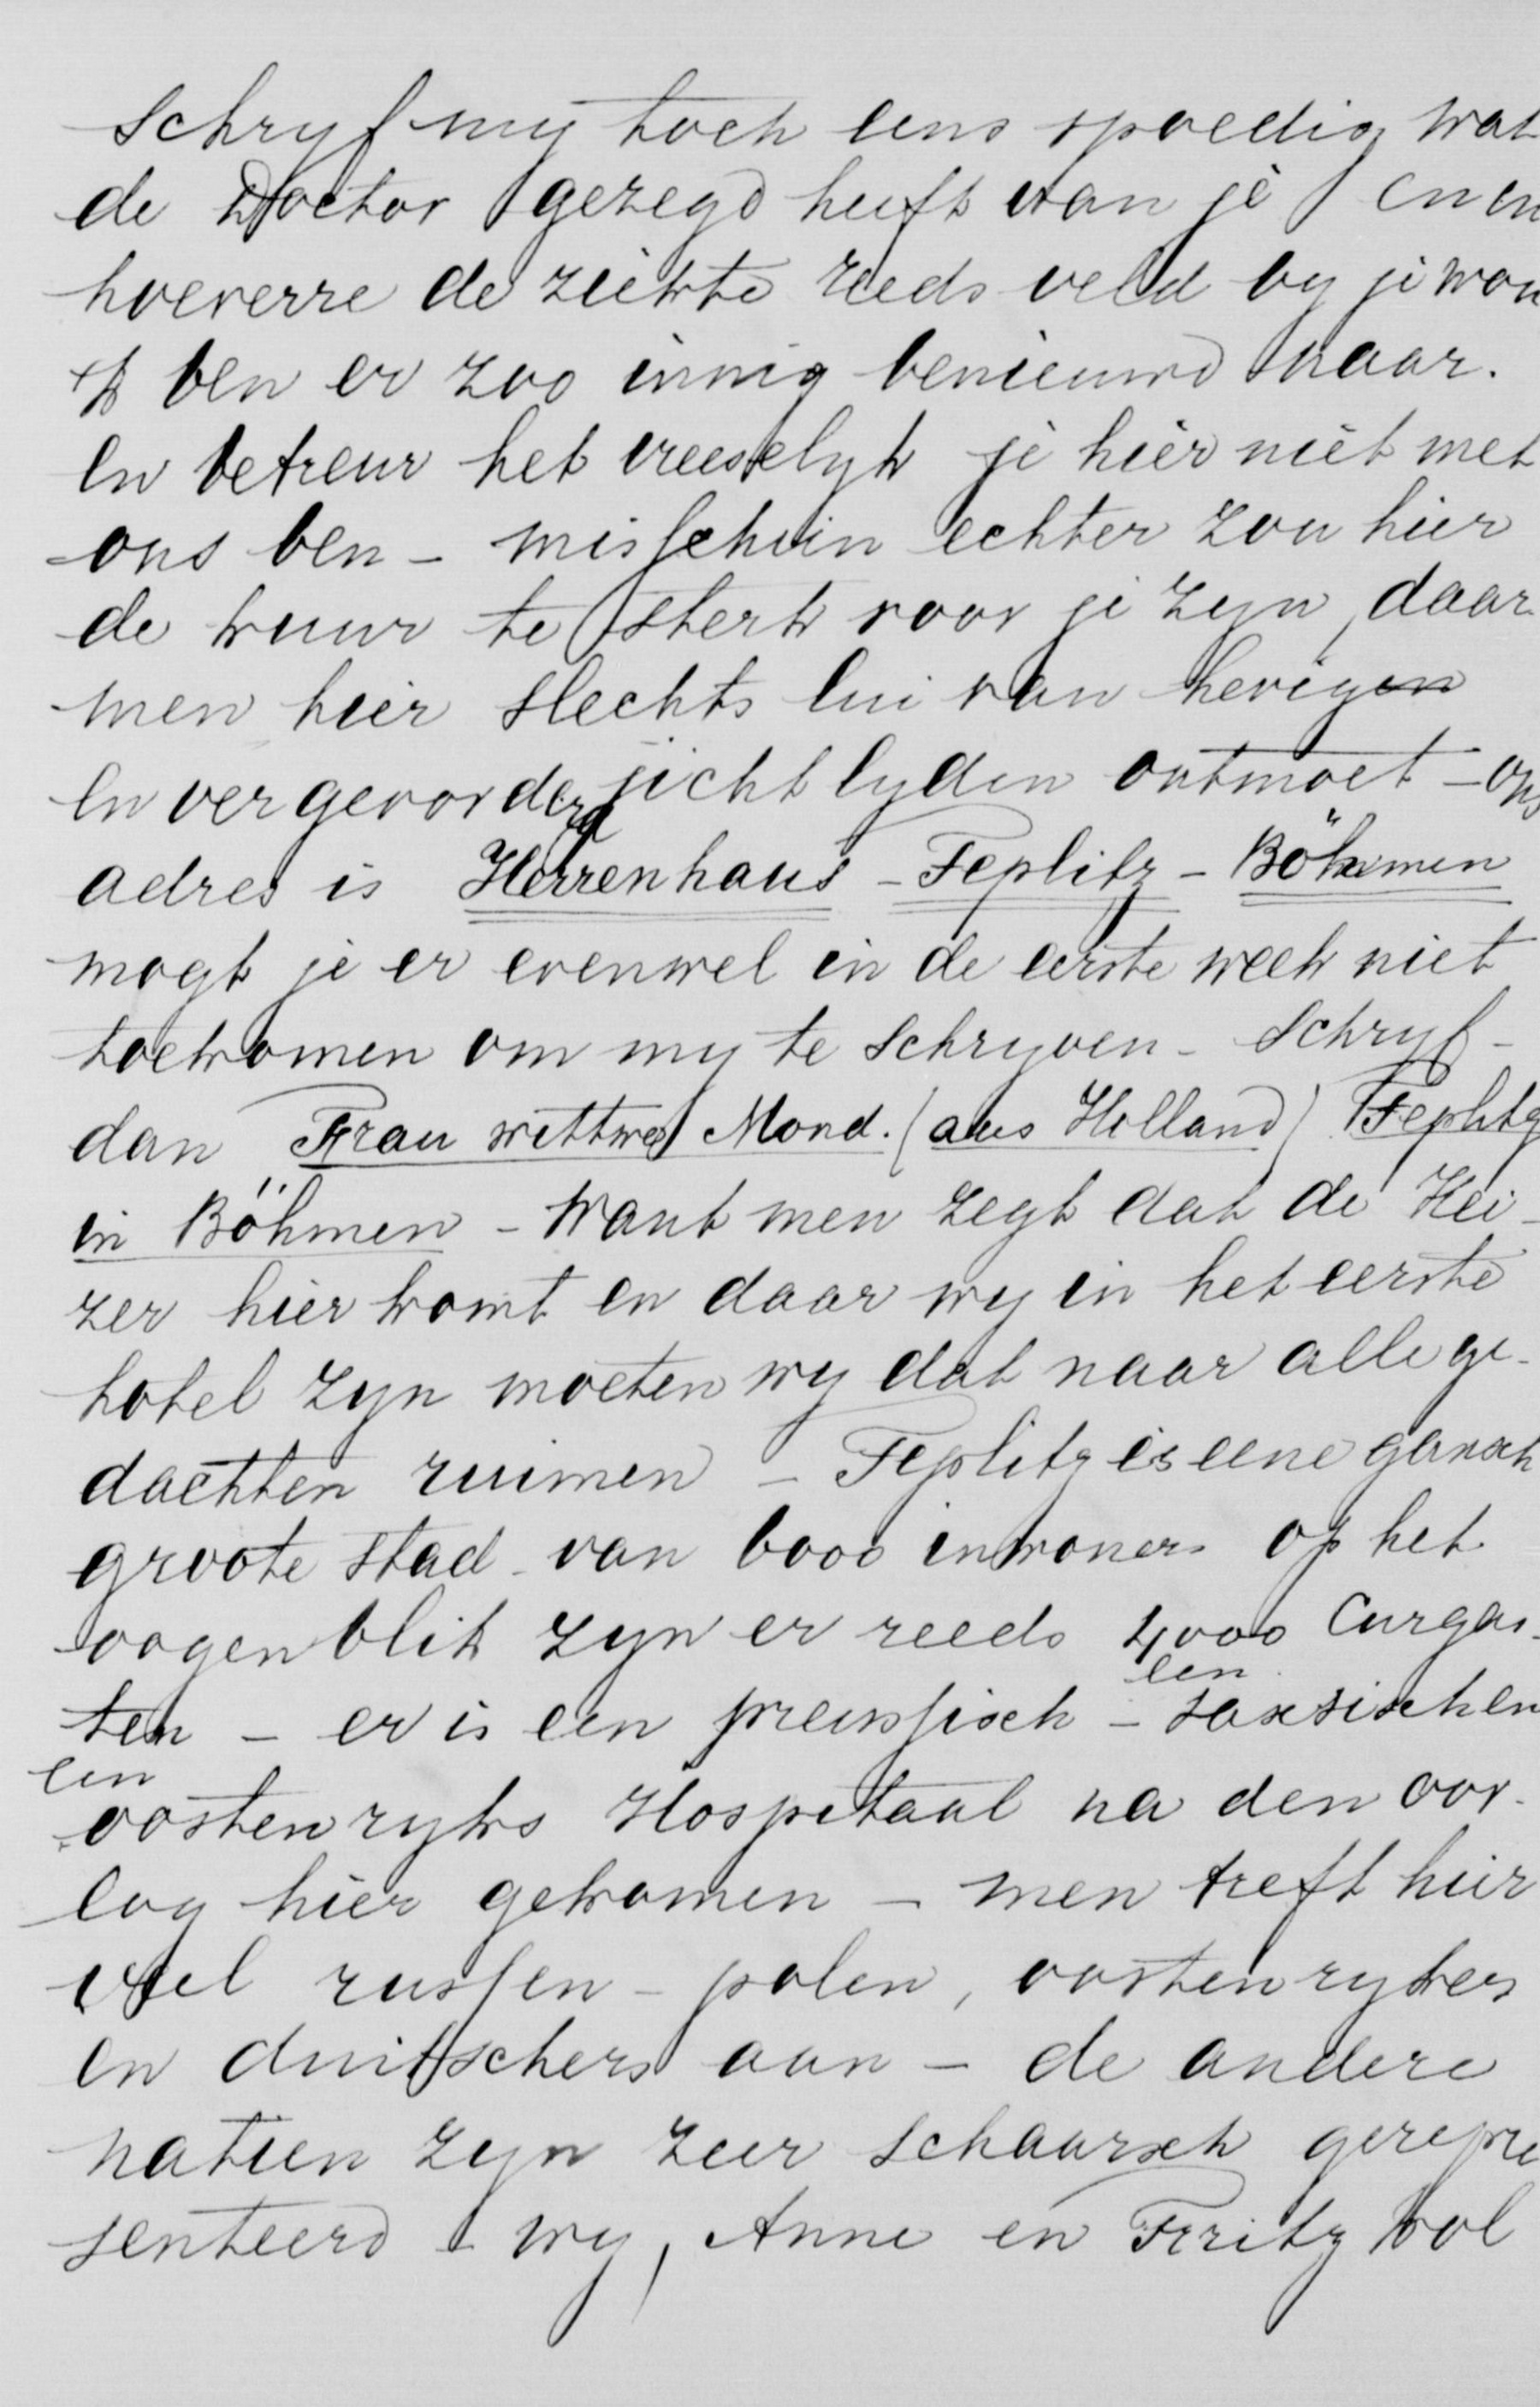 Schryf my toch eens spoedig wat
de Doctor gezegd heeft van je en in
hoeverre de ziekte reeds veld by je won
Ik ben er zoo innig benieuwd naar.
En betreur het vreeselyk je hier niet met
ons ben - misschien echter zou hier
de kuur te sterk voor je zyn, daar
men hier slechts lui van hevigen
en vergevorderd jicht lyden ontmoet - ons
adres is Herrenhaus - Teplitz - Böhmen
mogt je er evenwel in de eerste week niet
toekomen om my te schryven - Schryf -
dan Frau wittwe Mond. (aus Holland) Teplitz
in Böhmen - Want men zegt dat de Kei-
zer hier komt en daar wy in het eerste
hotel zyn moeten wy dat naar alle ge-
dachten ruimen - Teplitz is eene gansch
groote stad van 6000 inwoners op het
oogenblik zyn er reeds 4000 Curgas-
ten - er is een preussisch - een saxsischen
een oostenryks Hospitaal na den oor-
log hier gekomen - men treft hier
veel russen - polen, oostenrykers
en duitschers aan - de andere
natien zyn zeer schaarsch gerepre
senteerd - wy, Anne en Fritz Kol